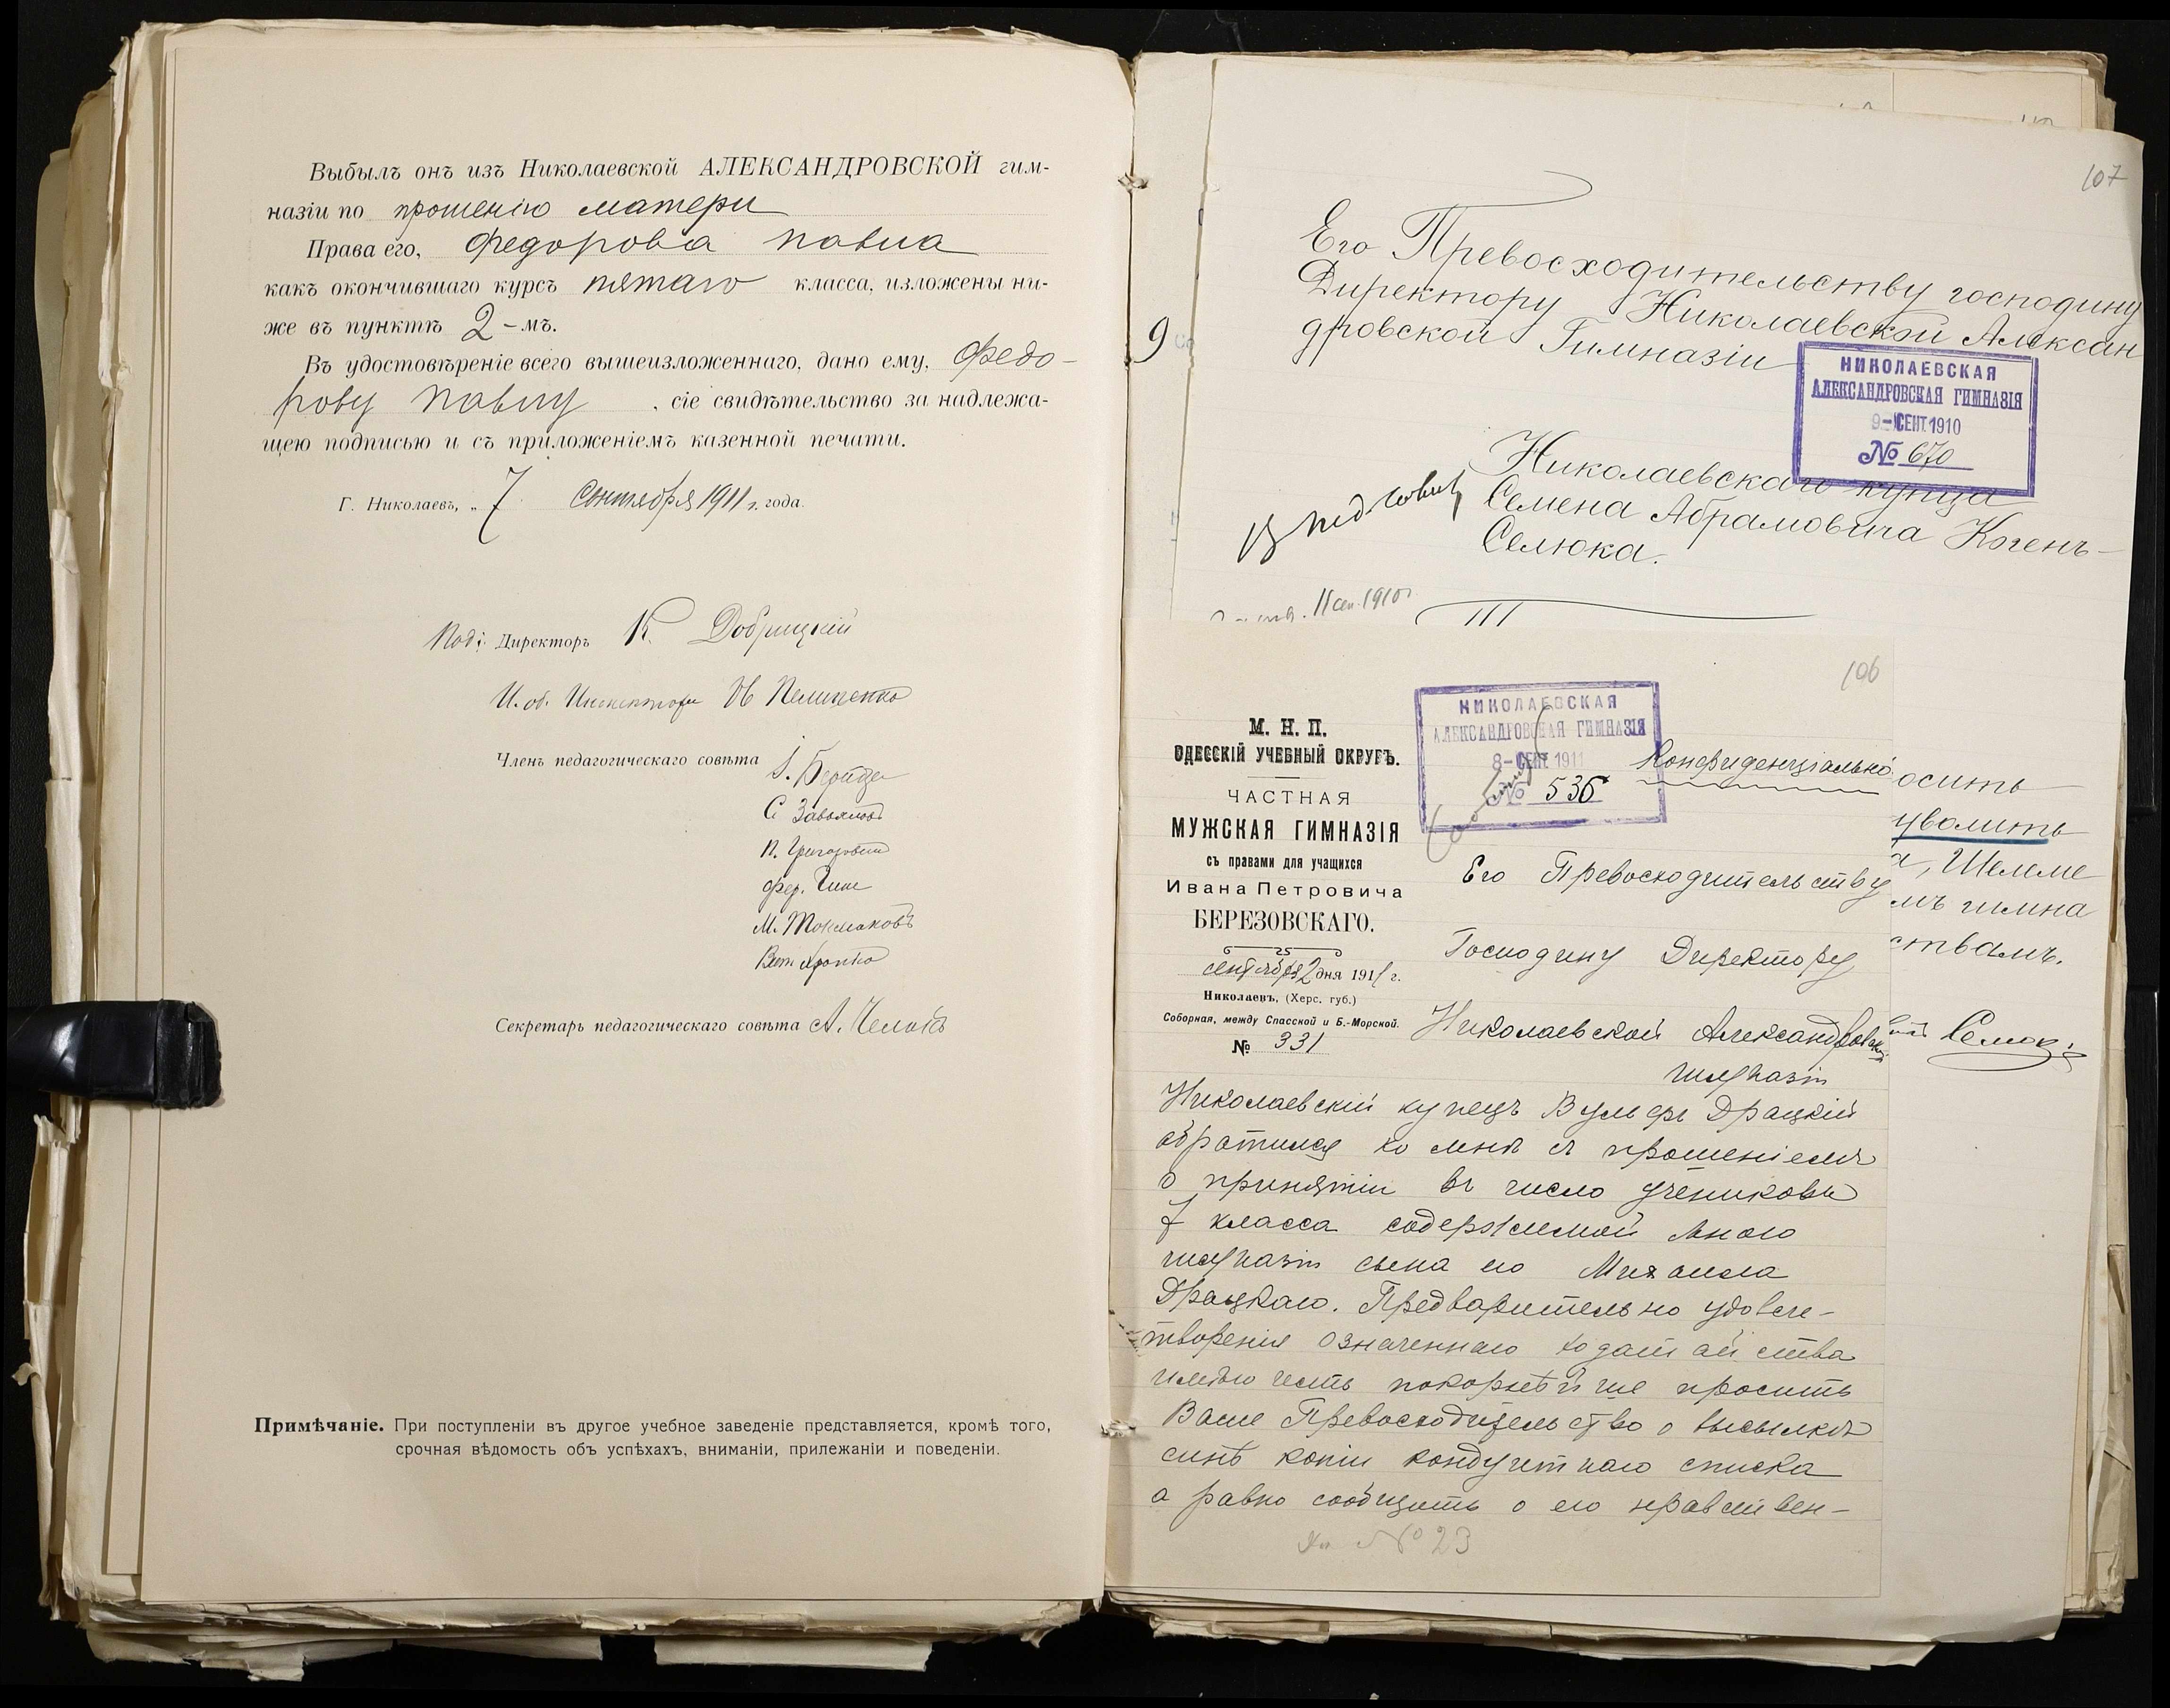 Выбылъ онъ изъ Николаевской АЛЕКСАНДРОВСКОЙ гим-
назіи по прошенію матери
Права его, Федорова Павла
какъ окончившаго курсъ пятаго класса, изложены ни-
же въ пунктѣ 2-мъ.
Въ удостовѣреніе всего вышеизложеннаго, дано ему, Федо-
рову Павлу, сіе свидѣтельство за надлежа-
щею подписью и съ приложеніемъ казенной печати.
Г. Николаевъ, „ 7 Сентября 1911 г. года.
Под: Директоръ К. Добрицкій
И. об. Инспектора Ив Пелипенко
Членъ педагогическаго совѣта
С Завьялов
П. Григоровичъ
Фер. Гине
М. Токмаковъ
Секретарь педагогическаго совѣта А.
Примѣчаніе. При поступленіи въ другое учебное заведеніе представляется, кромѣ того,
срочная вѣдомость объ успѣхахъ, вниманіи, прилежаніи и поведеніи.
107
Его Превосходительству господину
Директору Николаевской Алексан
дровской Гимназіи
9
НИКОЛАЕВСКАЯ
АЛЕКСАНДРОВСКАЯ ГИМНАЗІЯ
9-СЕНТ.1910
№ 670
Николаевскаго купца
Семена Абрамовича Когенъ-
Селюка.
11 сен. 1910 г.
106
НИКОЛАЕВСКАЯ
АЛЕКСАНДРОВСКАЯ ГИМНАЗІЯ
8-СЕНТ 1911
№ 536
Конфиденціально
М. Н. П.
ОДЕССКІЙ УЧЕБНЫЙ ОКРУГЪ.
ЧАСТНАЯ
МУЖСКАЯ ГИМНАЗІЯ
съ правами для учащихся
Ивана Петровича
БЕРЕЗОВСКАГО.
сентября 2 дня 1911 г.
Николаевъ, (Херс. губ.)
Соборная, между Спасской и Б.-Морской.
№ 331
Его Превосходительству
Господину Директору
Николаевской Александровской
гимназіи
осить
уволить
а, Шелме
мъ гимна
ствамъ.
Селюкъ
Николаевскій купецъ Вульфъ Драцкій
обратился ко мнѣ съ прошеніемъ
о принятіи въ число учениковъ
7 класса содержимой мною
гимназіи сына его Михаила
Драцкаго. Предварительно удовле-
творенія означеннаго ходатайства
имѣю честь покорнѣйше просить
Ваше Превосходительство о высылкѣ
копіи кондуитнаго списка
а равно сообщить о его нравствен-
№ 23